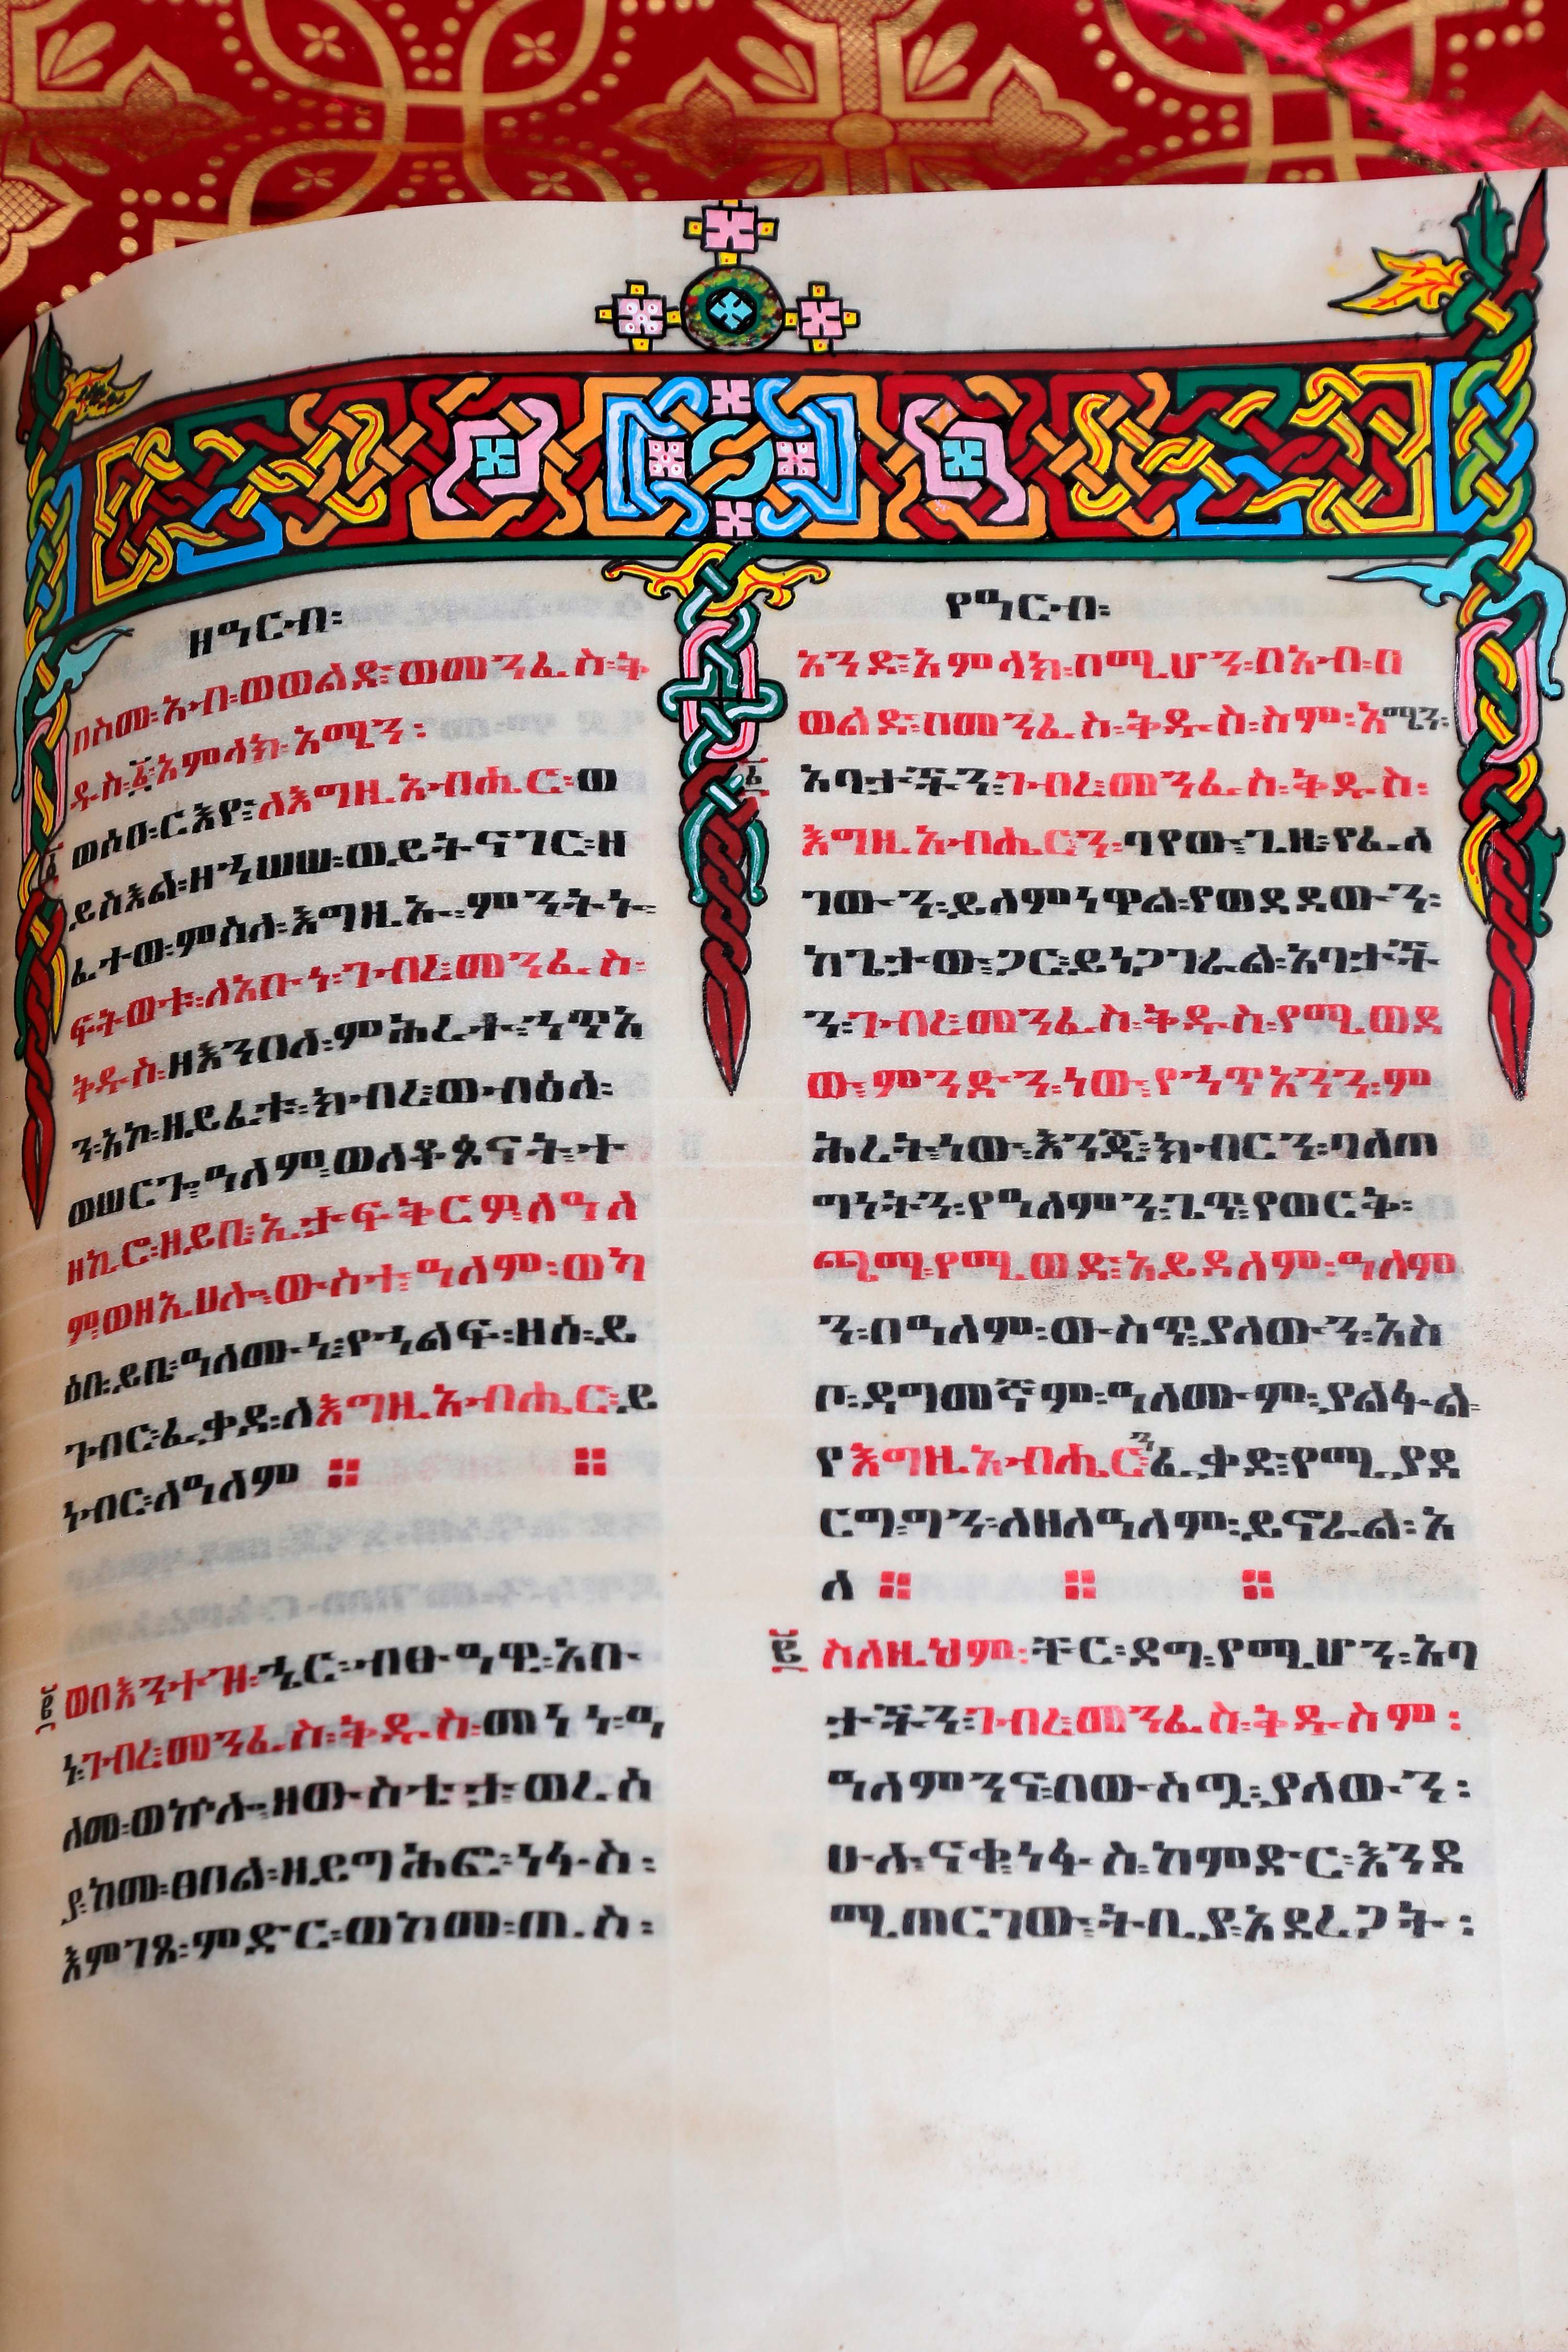 ዘዓርብ፡
በስመ፡አብ፡ወወልድ፡ወመንፈስ፡ቅ
ዱስ፡፩፡አምላክ፡አሚን፡
ወሰዐ፡ርእዮ፡ለእግዚአብሔር፡ወ
ይስእል፡በእንተ
ፈተው፡ምስለ፡እግዚአ፡ምንትኑ፡
ፍትወቱ፡ለአቡነ፡ገብረ፡መንፈስ፡
ቅዱስ፡ዘእንበለ፡ምሕረት፡ኃጥአ
ን፡አኮ፡ዘይፈቱ፡ክብረ፡ወብዕለ፡
ወሠርጐ፡ዓለም፡ወለቆጽናት፡ተ
ዘኪሮ፡ዘይቤ፡ኢታፍቅርዎ፡ለዓለ
ም፡ወዘኢሀሎ፡ውስተ፡ዓለም፡ወካ
ዕበ፡ይቤ፡ዓለሙኒ፡የኀልፍ፡ዘሰ፡ይ
ገብር፡ፈቃዶ፡ለእግዚአብሔር፡ይ
ነብር፡ለዓለም
፪ ወበእንተዝ፡ኄር፡ብፁዓዊ፡አቡ
ነ፡ገብረ፡መንፈስ፡ቅዱስ፡መነነ፡ዓ
ለመ፡ወኵሎ፡ዘውስቴታ፡ወረሰ
ያ፡ከመ፡ፀበል፡ዘይግሕፎ፡ነፋስ፡
እምገጸ፡ምድር፡ወከመ፡ጢስ፡
የዓርብ፡
አንድ፡አምላክ፡በሚሆን፡በአብ፡በ
ወልድ፡በመንፈስ፡ቅዱስ፡ስም፡አሚን፡
፩ አባታችን፡ገብረ፡መንፈስ፡ቅዱስ፡
እግዚአብሔርን፡ባየው፡ጊዜ፡የፈለ
ገውን፡ይለምነዋል፡የወደደውን፡
ከጌታው፡ጋር፡ይነጋገራል፡አባታች
ን፡ገብረ፡መንፈስ፡ቅዱስ፡የሚወደ
ው፡ምንድን፡ነው፡የኀጥአንን፡ም
ሕረት፡ነው፡እንጂ፡ክብርን፡ባለጠ
ግነትን፡የዓለምን፡ጌጥ፡የወርቅ፡
ጫማ፡የሚወድ፡አይደለም፡ዓለም
ን፡በዓለም፡ውስጥ፡ያለውን፡አስ
ቦ፡ዳግመኛም፡ዓለሙም፡ያልፋል፡
የእግዚአብሔርን፡ፈቃድ፡የሚያደ
ርግ፡ግን፡ለዘለዓለም፡ይኖራል፡አ
ለ
፪ ስለዚህም፡ቸር፡ደግ፡የሚሆን፡አባ
ታችን፡ገብረ፡መንፈስ፡ቅዱስም፡
ዓለምንና፡በውስጧ፡ያለውን፡
ሁሉ፡ናቁ፡ነፋስ፡ከምድር፡እንደ
ሚጠርገው፡ትቢያ፡አደረጋት፡